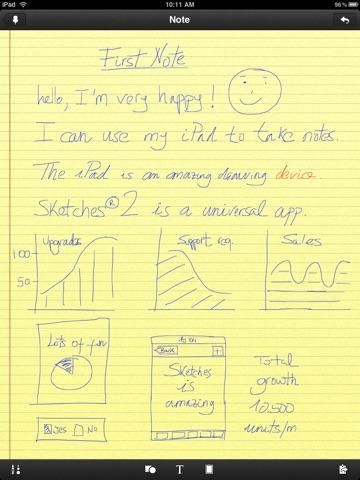 iPad 10:11 AM 96%
Note
First Note
hello, I'm very happy!
I can use my iPad to take notes.
The iPad is an amazing drawing device.
Sketches® 2 is a universal app.
Upgrades
100
50
Support req.
Sales
Lots of fun
Yes No
10:04
Back +
Sketches
is
amazing
Total
growth
10.500
units/m
T